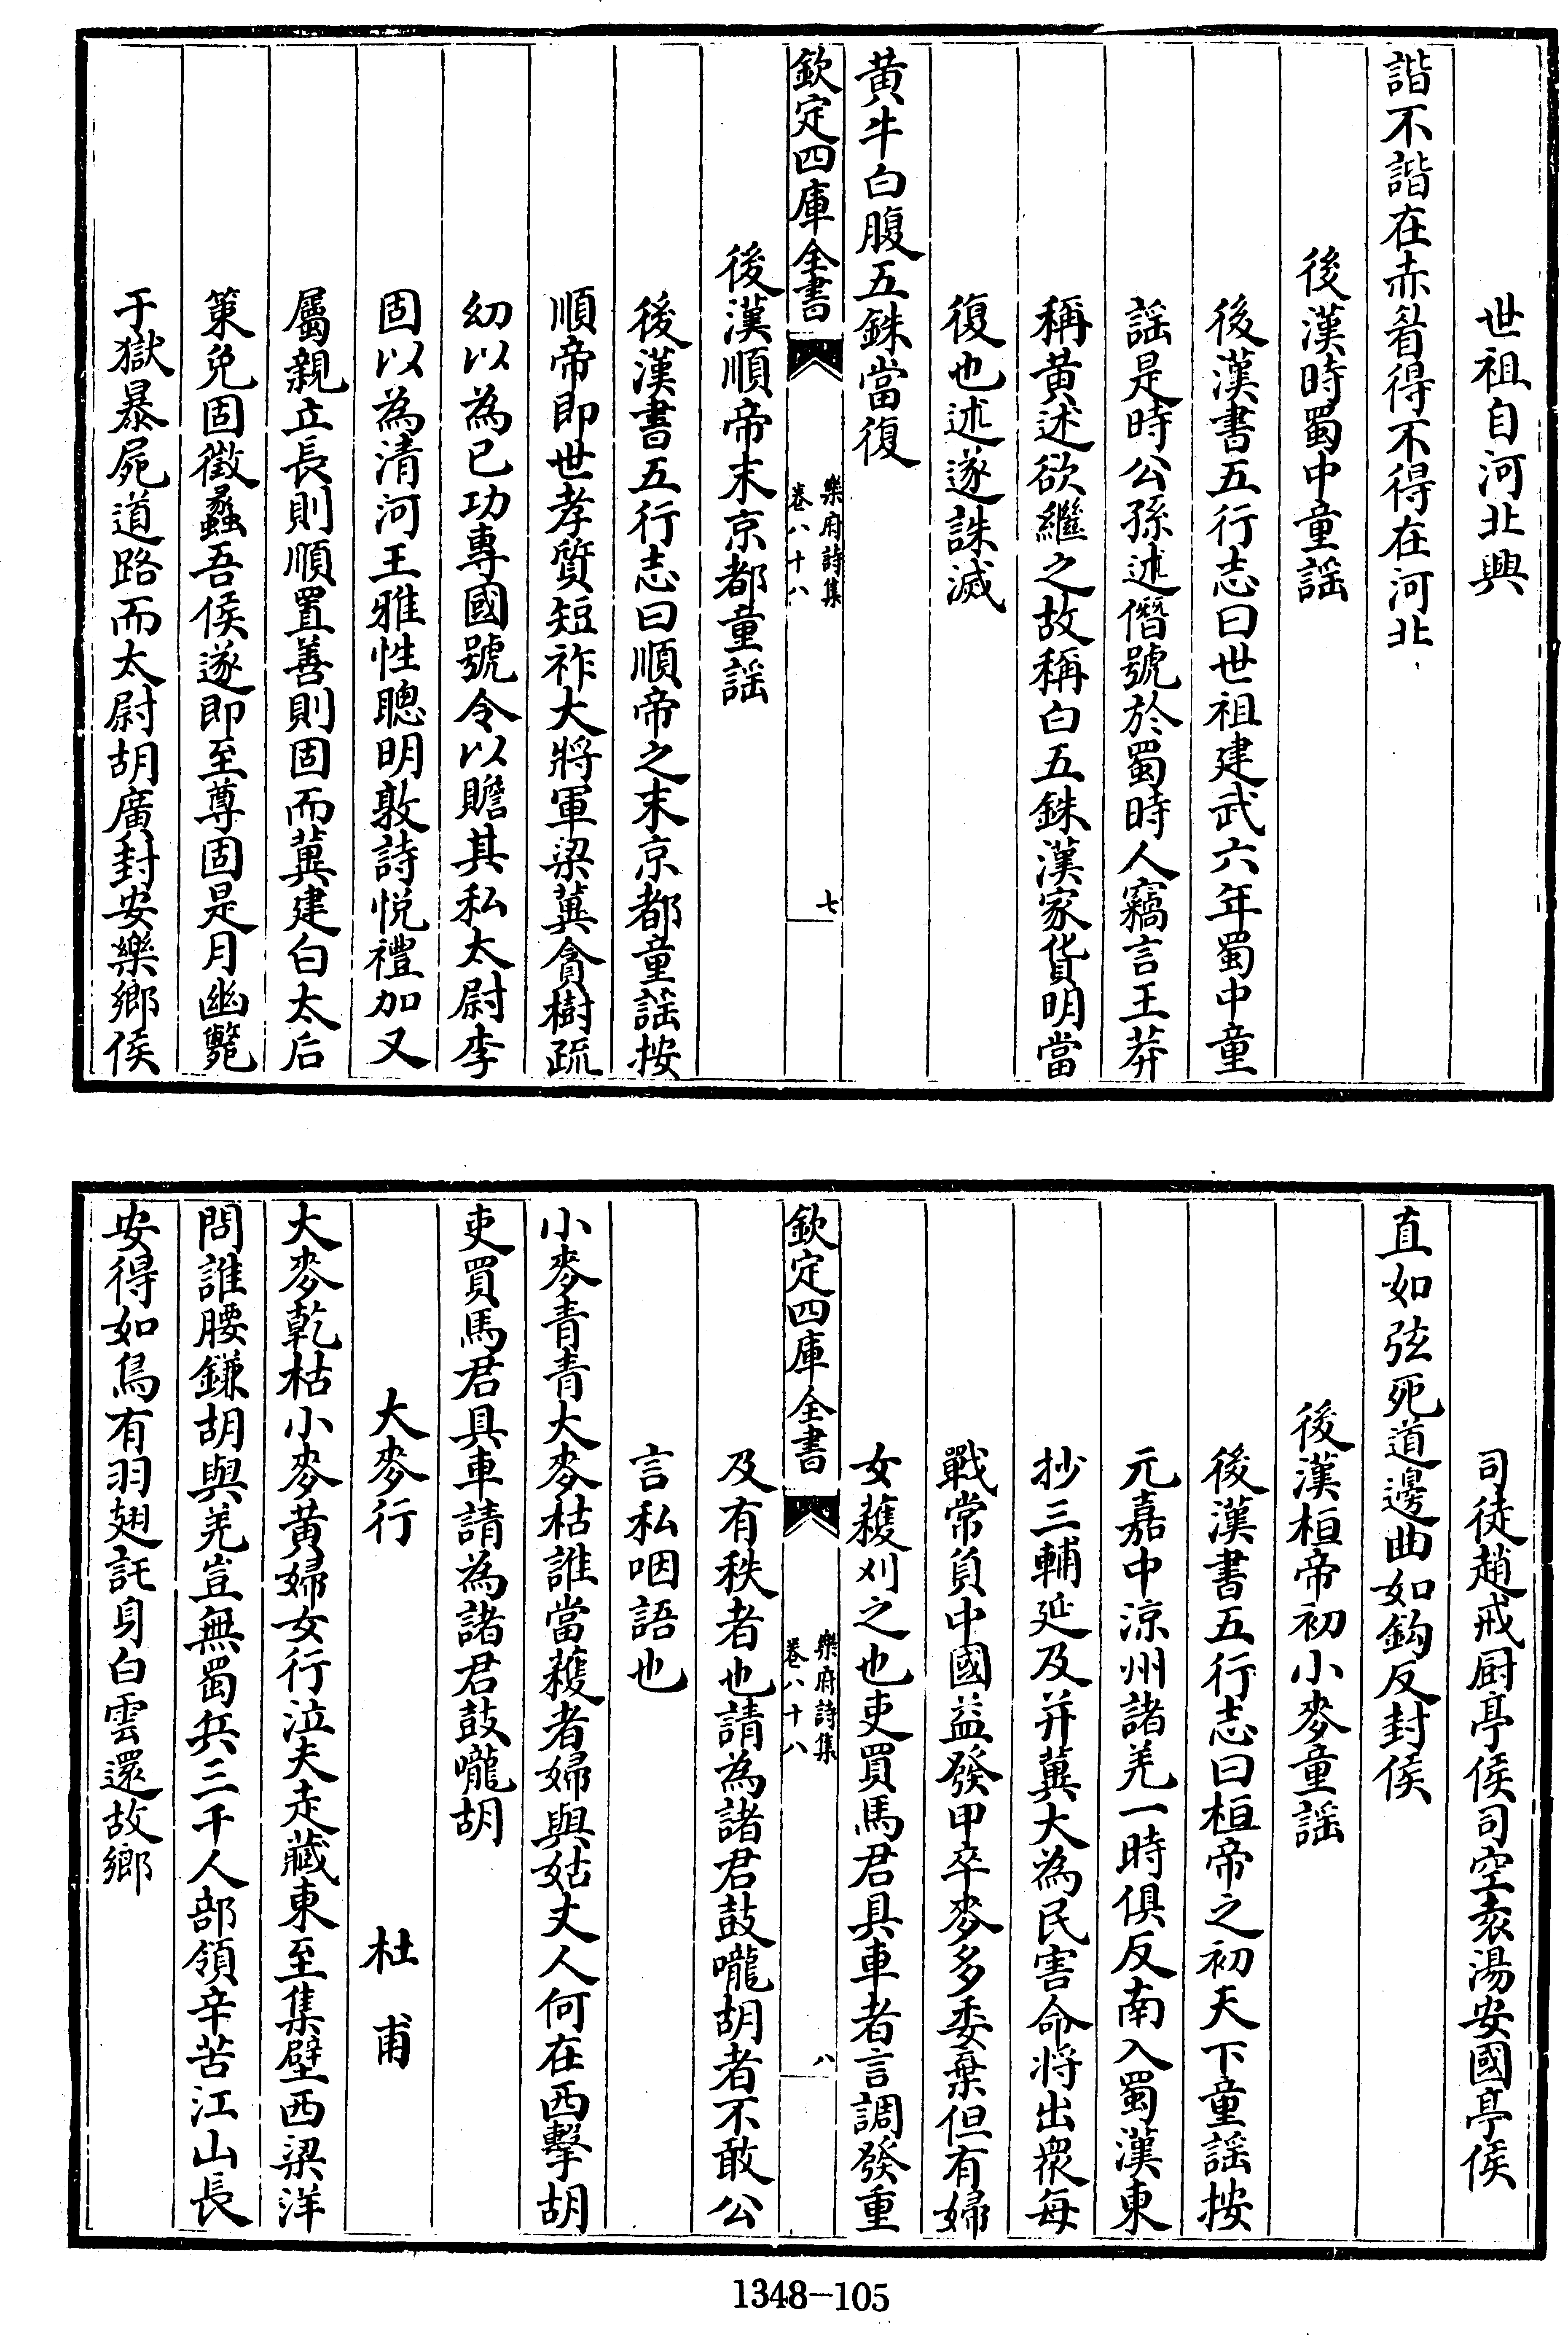 世祖自河北興
諧不諧在赤眉得不得在河北
後漢時蜀中童謡
後漢書五行志曰世祖建武六年蜀中童
謡是時公孫述僭號於蜀時人竊言王莽
稱黄述欲繼之故稱白五銖漢家貨明當
復也述遂誅滅
黄牛白腹五銖當復
欽定四庫全書
樂府詩集
卷八十八
七
後漢順帝末京都童謡
後漢書五行志曰順帝之末京都童謡按
順帝即世孝質短祚大將軍梁冀貪樹疏
幼以為已功專國號令以贍其私太尉李
固以為清河王雅性聰明敦詩悦禮加又
屬親立長則順置善則固而冀建白太后
策免固徵蠡吾侯遂即至尊固是月幽斃
于獄暴屍道路而太尉胡廣封安樂鄉侯
司徒趙戒厨亭侯司空袁湯安國亭侯
直如弦死道邊曲如鈎反封侯
後漢桓帝初小麥童謡
後漢書五行志曰桓帝之初天下童謡按
元嘉中涼州諸羌一時俱反南入蜀漢東
抄三輔延及并冀大為民害命將出衆每
戰常負中國益發甲卒麥多委棄但有婦
女穫刈之也吏買馬君具車者言調發重
欽定四庫全書
樂府詩集
卷八十八
八
及有秩者也請為諸君鼓嚨胡者不敢公
言私咽語也
小麥青青大麥枯誰當穫者婦與姑丈人何在西擊胡
吏買馬君具車請為諸君鼓嚨胡
大麥行 杜甫
大麥乾枯小麥黄婦女行泣夫走藏東至集壁西梁洋
問誰腰鎌胡與羌豈無蜀兵三千人部領辛苦江山長
安得如鳥有羽翅託身白雲還故鄉
1348-105